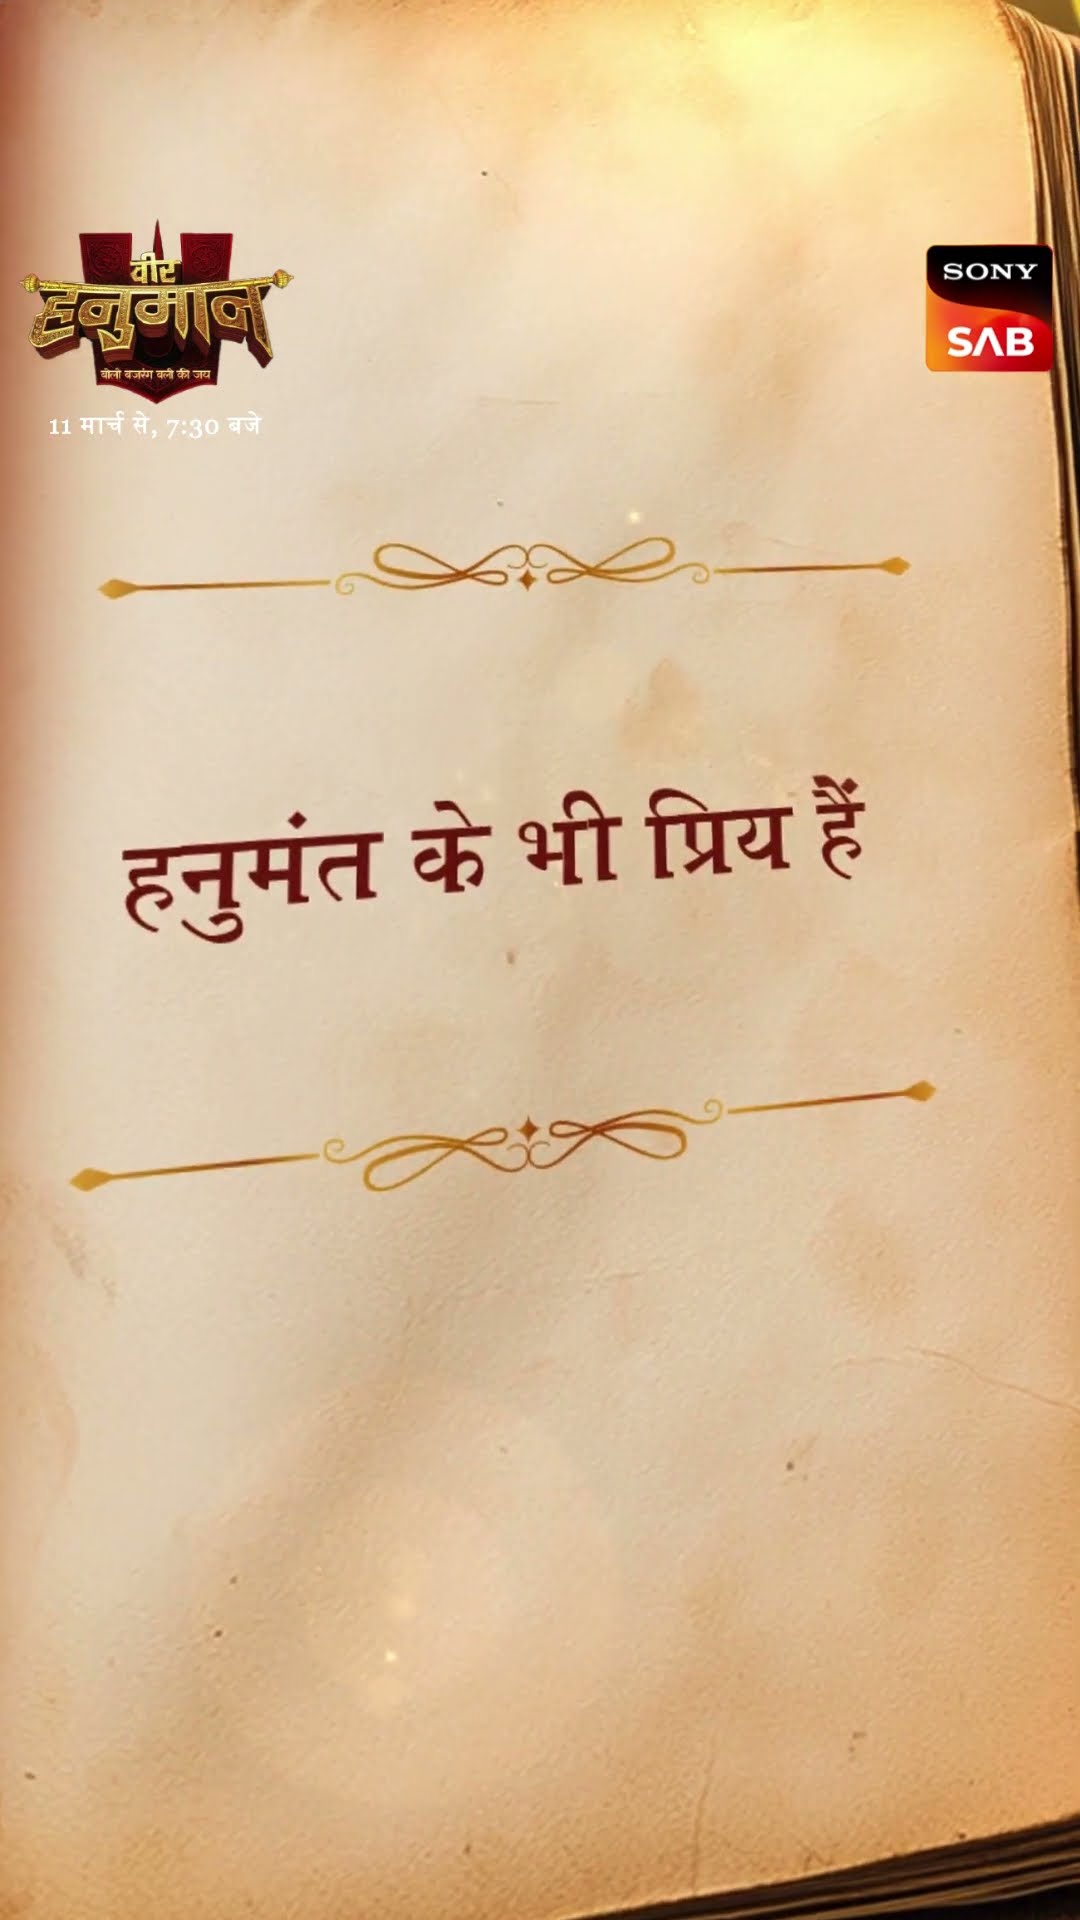 वीर
हनुमान
बोलो बजरंग बली की जय
11 मार्च से, 7:30 बजे
SONY
SAB
हनुमंत के भी प्रिय हैं